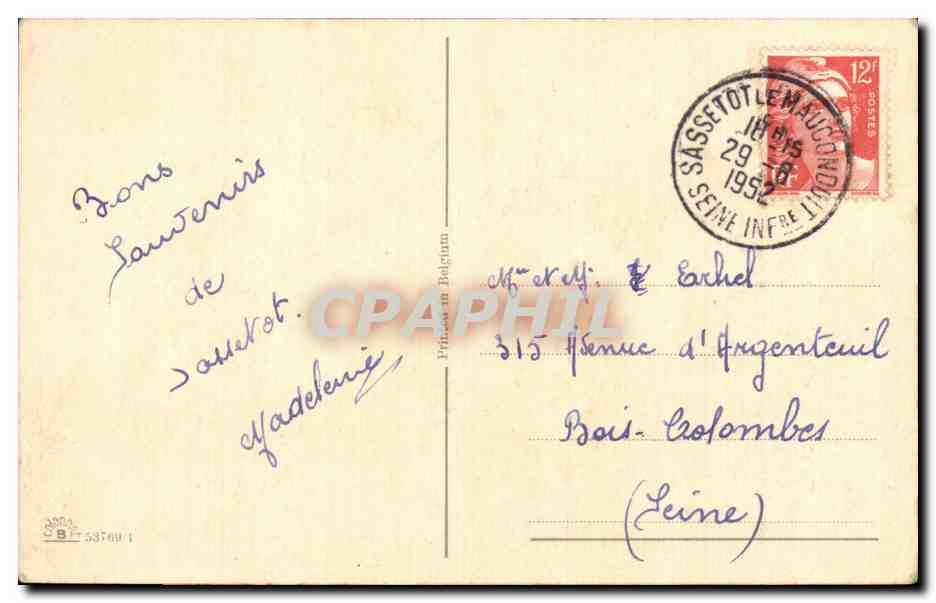 Bons
Souvenirs
de
Sassetot.
Madeleine
COLORPRINT
B
53769/1
Printed in Belgium
CPAPHIL
12F
POSTES
RF
SASSETOT LE MAUCONDUIT
18H15
29-8
1952
SEINE INFRE
Mme et Mr Erhel
315 Avenue d'Argenteuil
Bois-Colombes
(Seine)